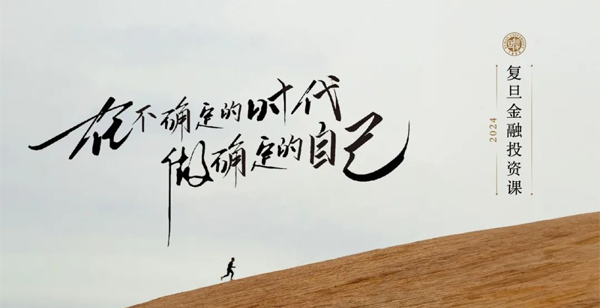 在不确定的时代
做确定的自己
复旦金融投资课
2024